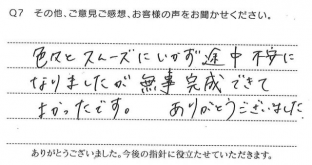 Q7 その他、ご意見ご感想、お客様の声をお聞かせください。
色々とスムーズにいかず途中不安に
なりましたが無事完成できて
よかったです。 ありがとうございました
ありがとうございました。今後の指針に役立たせていただきます。